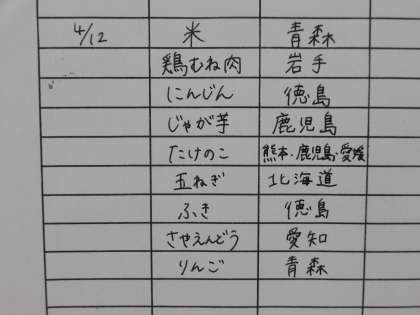 4/12 米 青森
鶏むね肉 岩手
にんじん 徳島
じゃが芋 鹿児島
たけのこ 熊本・鹿児島・愛媛
玉ねぎ 北海道
ふき 徳島
さやえんどう 愛知
りんご 青森